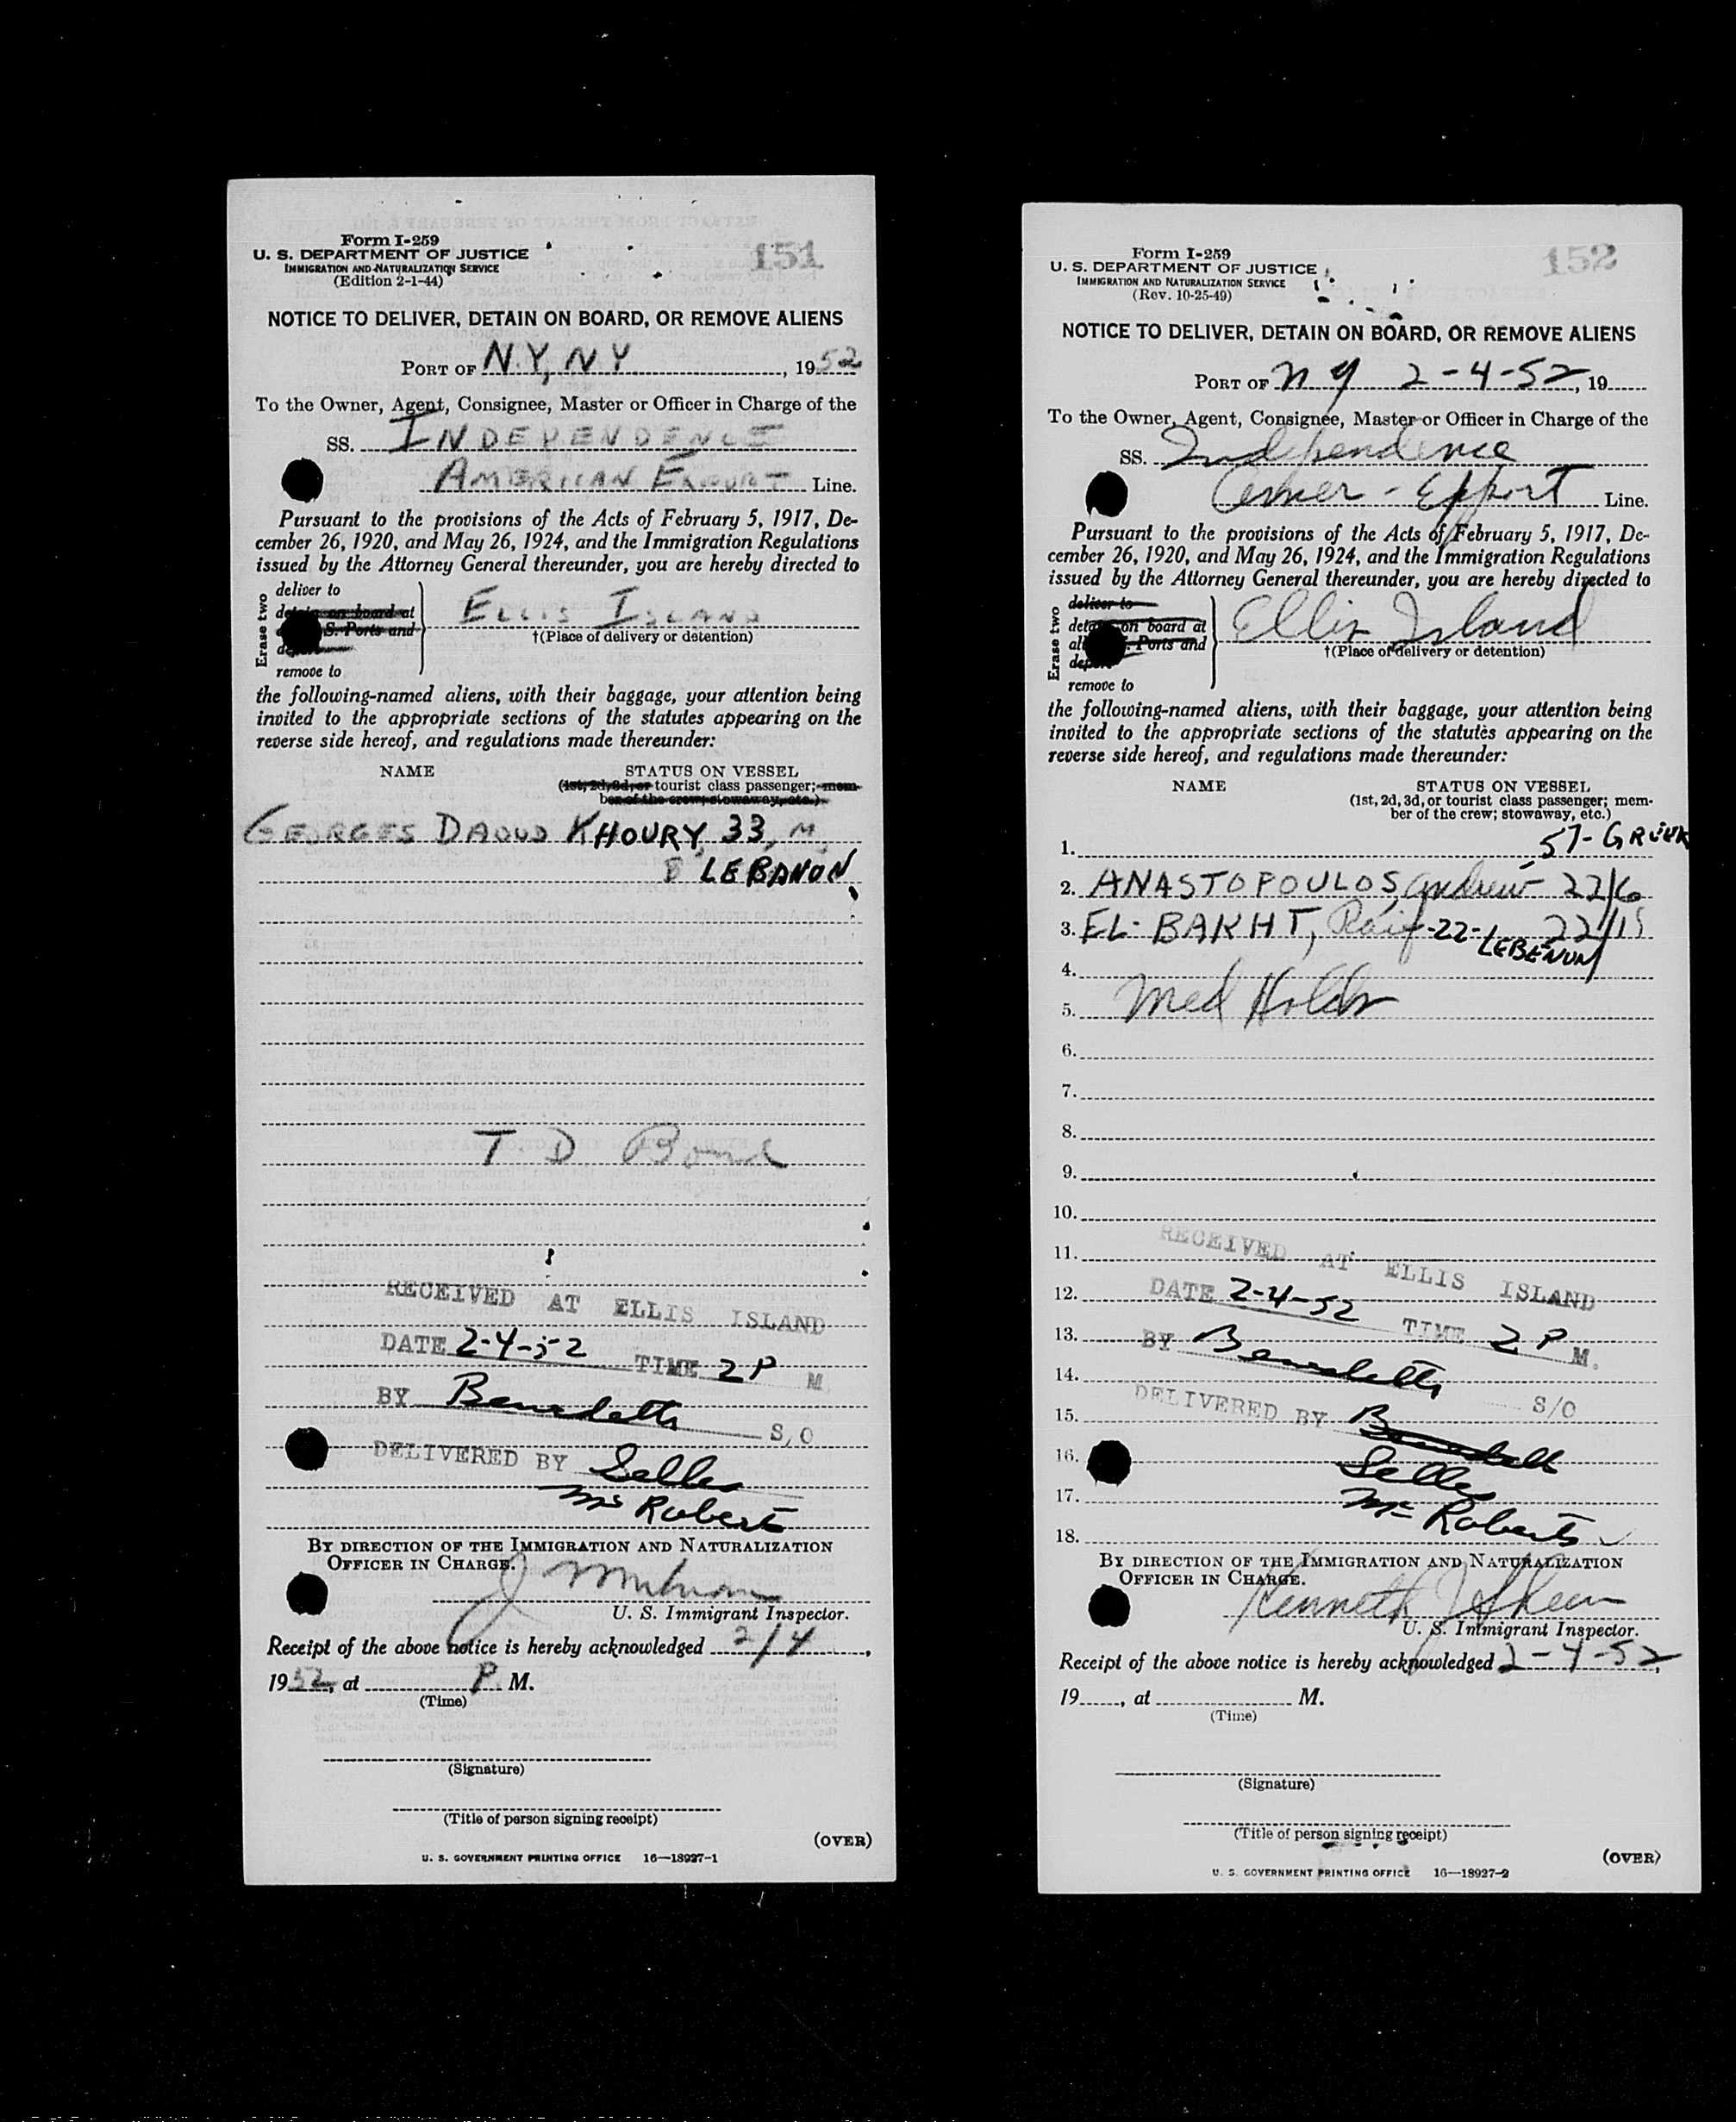 Form I-259
U. S. DEPARTMENT OF JUSTICE
IMMIGRATION AND NATURALIZATION SERVICE
(Edition 2-1-44)
151
NOTICE TO DELIVER, DETAIN ON BOARD, OR REMOVE ALIENS
PORT OF N.Y, NY, 1952
To the Owner, Agent, Consignee, Master or Officer in Charge of the
SS. INDEPENDENCE
AMERICAN EXPORT Line.
Pursuant to the provisions of the Acts of February 5, 1917, De-
cember 26, 1920, and May 26, 1924, and the Immigration Regulations
issued by the Attorney General thereunder, you are hereby directed to
Erase two
deliver to
detain on board at
S. Ports and
remove to
ELLIS ISLAND
†(Place of delivery or detention)
the following-named aliens, with their baggage, your attention being
invited to the appropriate sections of the statutes appearing on the
reverse side hereof, and regulations made thereunder:
NAME STATUS ON VESSEL
(1st, 2d, 3d, or tourist class passenger; mem-
ber of the crew; stowaway, etc.)
GEORGES DAOUD KHOURY, 33, M,
LEBANON
T. D Bond
RECEIVED AT ELLIS ISLAND
DATE 2-4-52 TIME 2 P M
BY Benedetti S/O
DELIVERED BY Selles
Mc Roberts
BY DIRECTION OF THE IMMIGRATION AND NATURALIZATION
OFFICER IN CHARGE.
J
U. S. Immigrant Inspector.
Receipt of the above notice is hereby acknowledged 2/4,
1952, at P. M.
(Time)
(Signature)
(Title of person signing receipt)
(OVER)
U. S. GOVERNMENT PRINTING OFFICE 16—18927-1
Form I-259
U. S. DEPARTMENT OF JUSTICE
IMMIGRATION AND NATURALIZATION SERVICE
(Rev. 10-25-49)
152
NOTICE TO DELIVER, DETAIN ON BOARD, OR REMOVE ALIENS
PORT OF N Y 2-4-52, 19
To the Owner, Agent, Consignee, Master or Officer in Charge of the
SS. Independence
Amer-Export Line.
Pursuant to the provisions of the Acts of February 5, 1917, De-
cember 26, 1920, and May 26, 1924, and the Immigration Regulations
issued by the Attorney General thereunder, you are hereby directed to
Erase two
deliver to
detain on board at
all Ports and
remove to
Ellis Island
†(Place of delivery or detention)
the following-named aliens, with their baggage, your attention being
invited to the appropriate sections of the statutes appearing on the
reverse side hereof, and regulations made thereunder:
NAME STATUS ON VESSEL
(1st, 2d, 3d, or tourist class passenger; mem-
ber of the crew; stowaway, etc.)
1. 57-GREEK
2. ANASTOPOULOS, Andrew 22/6
3. EL-BAKHT, Raif -22- LEBENON 22/15
4.
5. Med Holds
6.
7.
8.
9.
10.
11. RECEIVED AT ELLIS ISLAND
12. DATE 2-4-52 TIME 2 P M.
13. BY Benedetti S/O
14.
15. DELIVERED BY Benedetti
16. Selles
17. Mc Roberts
18.
BY DIRECTION OF THE IMMIGRATION AND NATURALIZATION
OFFICER IN CHARGE.
Kenneth J Sheen
U. S. Immigrant Inspector.
Receipt of the above notice is hereby acknowledged 2-4-52,
19, at M.
(Time)
(Signature)
(Title of person signing receipt)
(OVER)
U. S. GOVERNMENT PRINTING OFFICE 16—18927-2